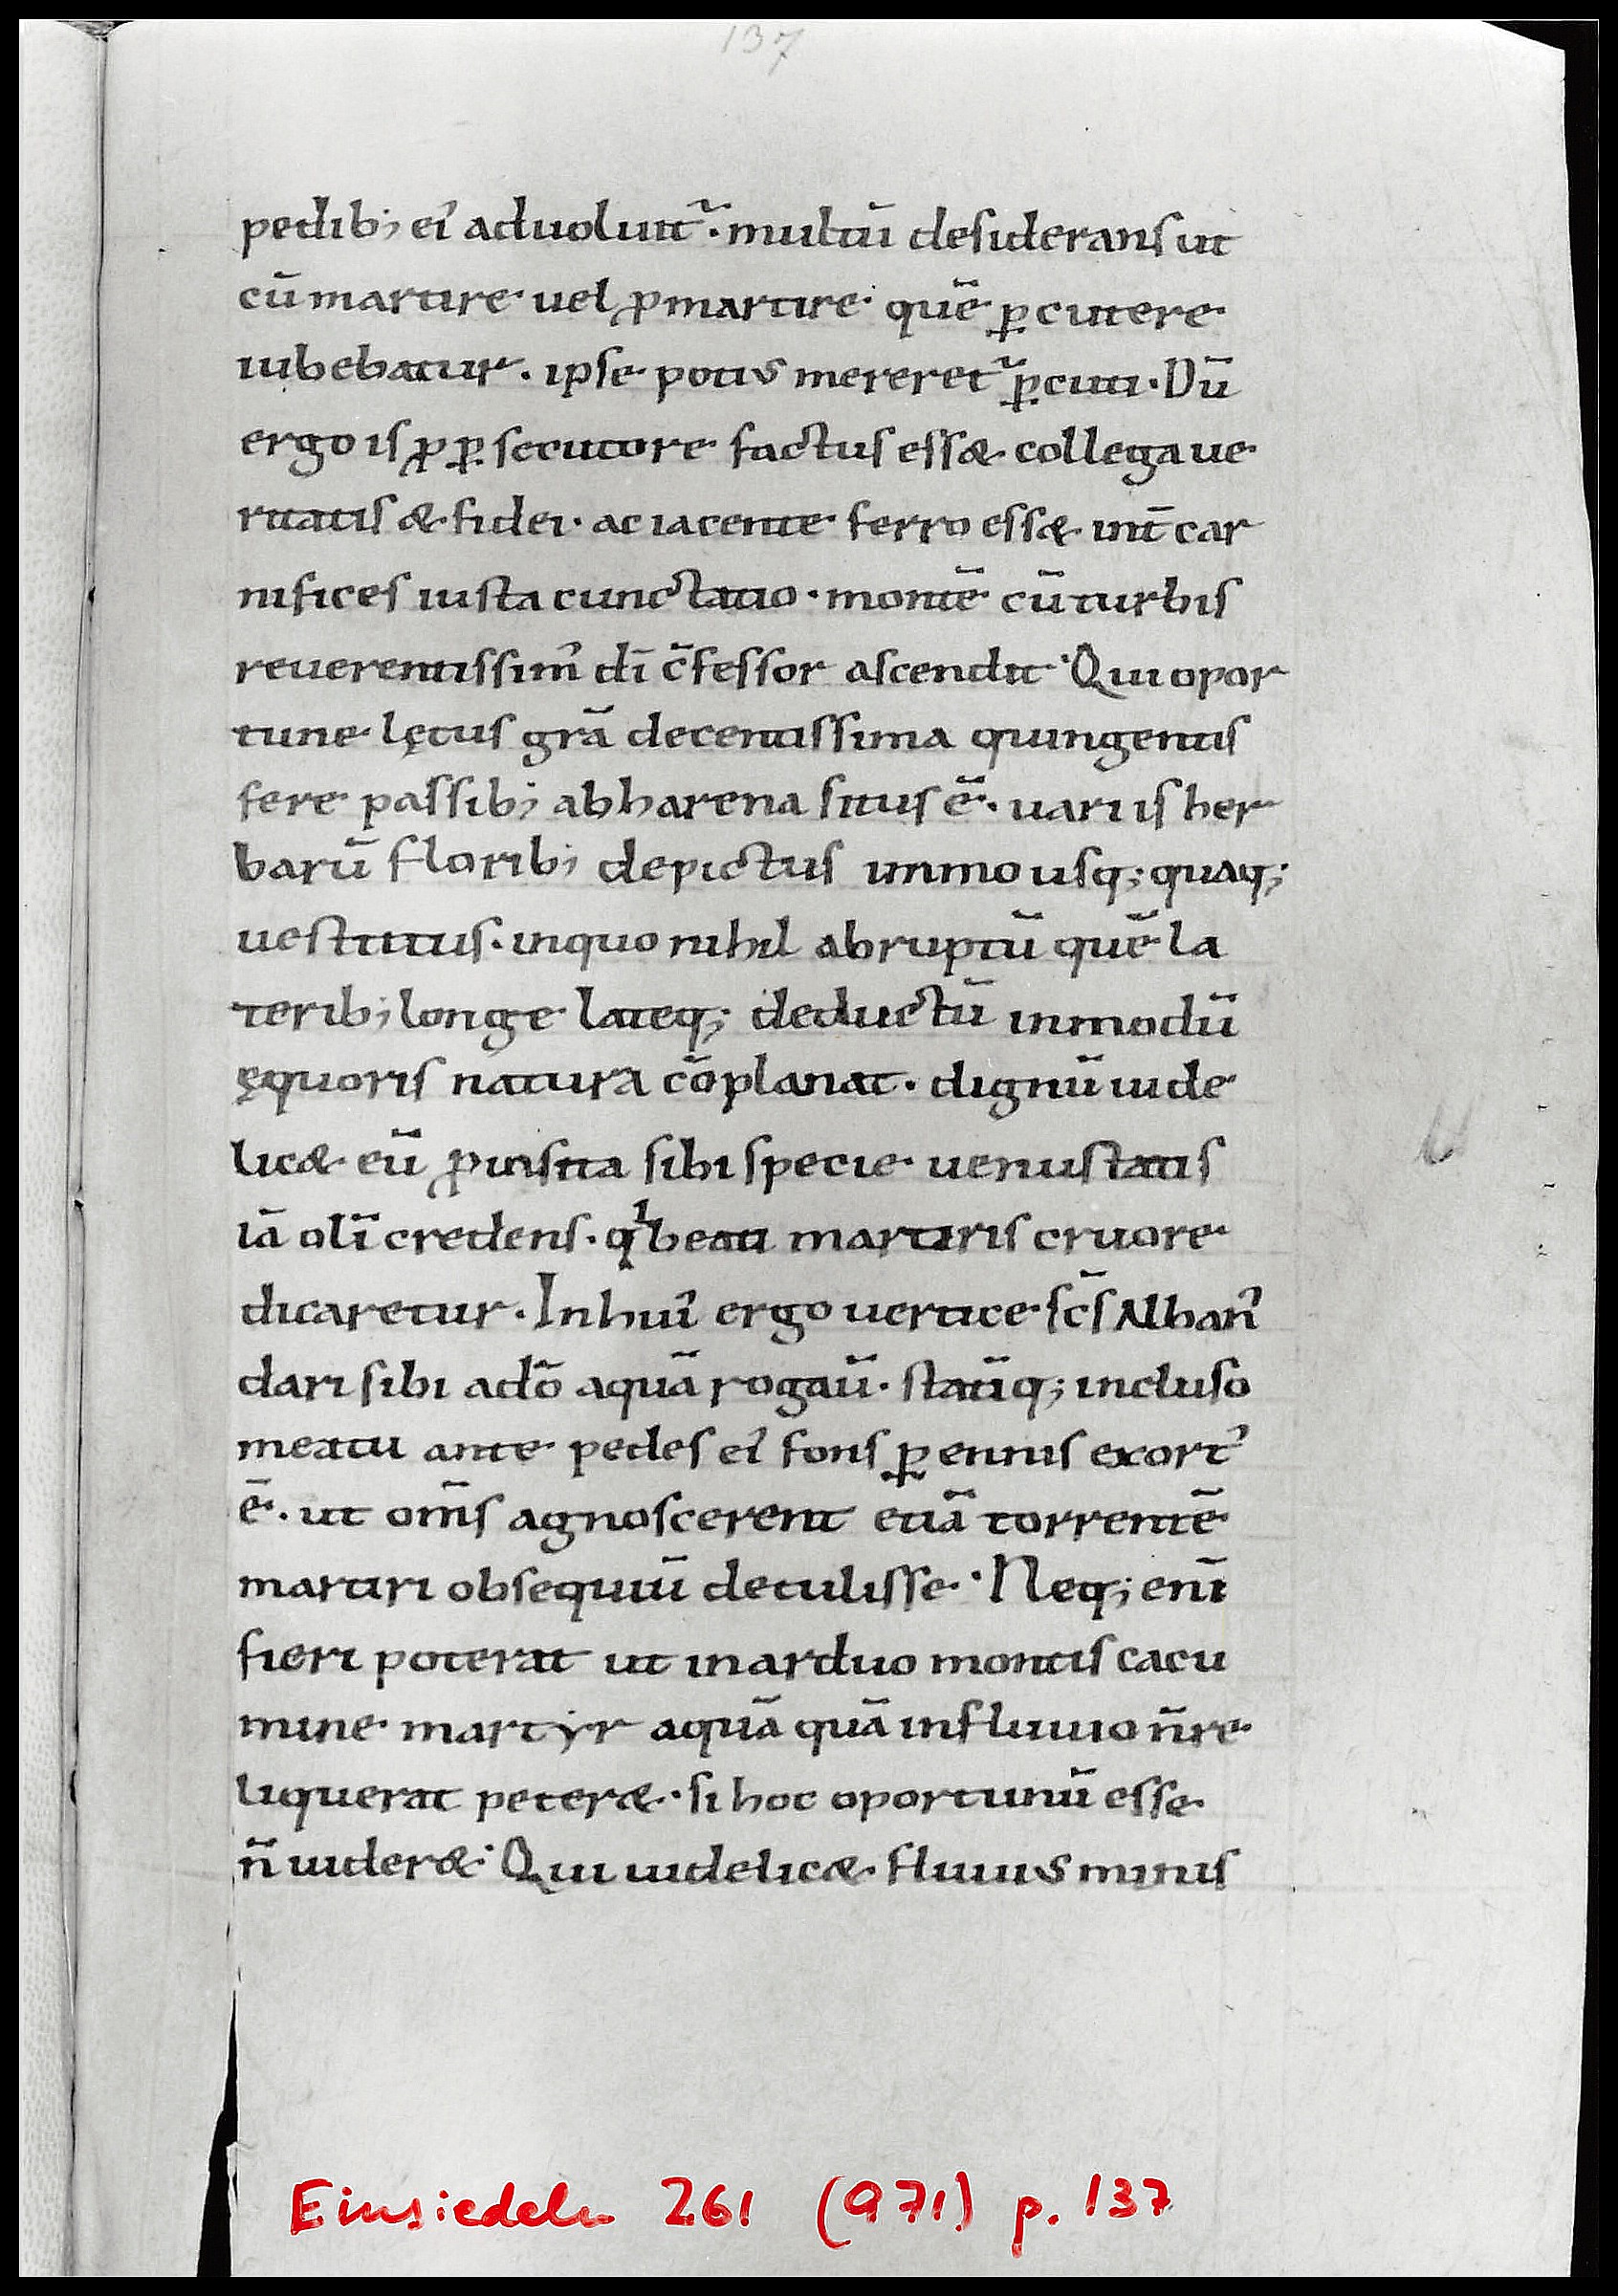 137
pedib; ei᾽ aduoluit᷑ · multū desiderans ut
cū martire uel ꝓ martire · quē ꝑcutere
iubebatur · ipse potius mereret᷑ ꝑcuti · Dū
ergo is ꝓ ꝑsecutore factus ess& collega ue
ritatis & fidei · ac iacente ferro ess& int̄ car
nifices iusta cunctatio · montē cū turbis
reuerentissim᾽ dī c̄fessor ascendit · Qui opor
tune lętus grā decentissima quingentis
fere passib; ab harena situs ē · uariis her
barū florib; depictus immo usq; quaq;
uestitus · in quo nihil abruptū quē la
terib; longe lateq; deductū in modū
ęquoris natura cōplanat · dignū uide
lic& eū ꝓ insita sibi specie uenustatis
iā olī credens · qⁱ beati martiris cruore
dicaretur · In hui᾽ ergo uertice sc̄s Alban᾽
dari sibi a dō aquā rogau̅ · statīq; incluso
meatu ante pedes ei᾽ fons ꝑennis exort᾽
ē · ut om̄s agnoscerent etiā torrentē
martiri obsequiū detulisse · Neq; enī
fieri poterat ut in arduo montis cacu
mine martyr aquā quā in fluuio n̄ re
liquerat peter& · si hoc oportunū esse
n̄ uider& · Qui uidelic& fluuius minis
Einsiedeln 261 (971) p. 137